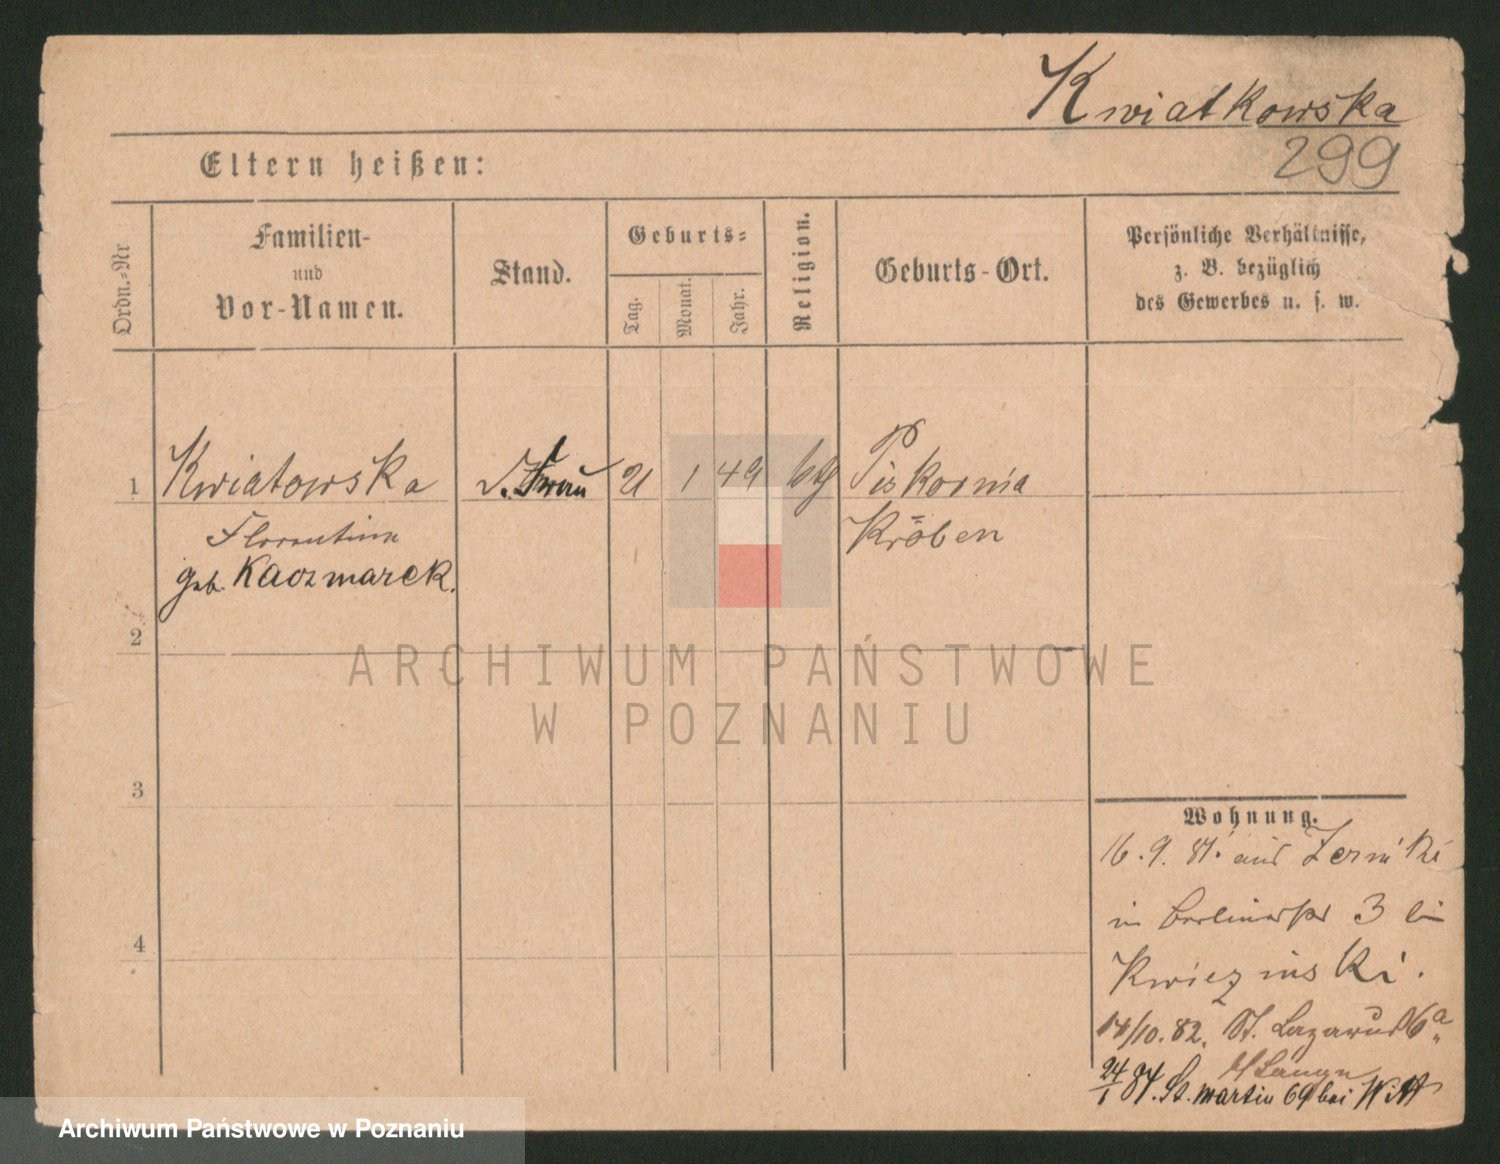 Kwiatkowska
299
Eltern heißen:
Ordn.-Nr
Familien-
und
Vor-Namen.
Stand.
Geburts-
Tag.
Monat.
Jahr.
Religion.
Geburts-Ort.
Persönliche Verhältnisse,
z. B. bezüglich
des Gewerbes u. s. w.
1 Kwiatowska 21 1 49 Piskornia
Florentina
Kröben
geb. Kaczmarek.
2
3
4
Wohnung.
16. 9. 81. aus Zerniki
in Berlinerstr 3 bei
Kwiezinski.
14/10. 82. St. Lazarus 6a
24/1 84. St. Martin 69 bei Witt
ARCHIWUM PAŃSTWOWE
W POZNANIU
Archiwum Państwowe w Poznaniu